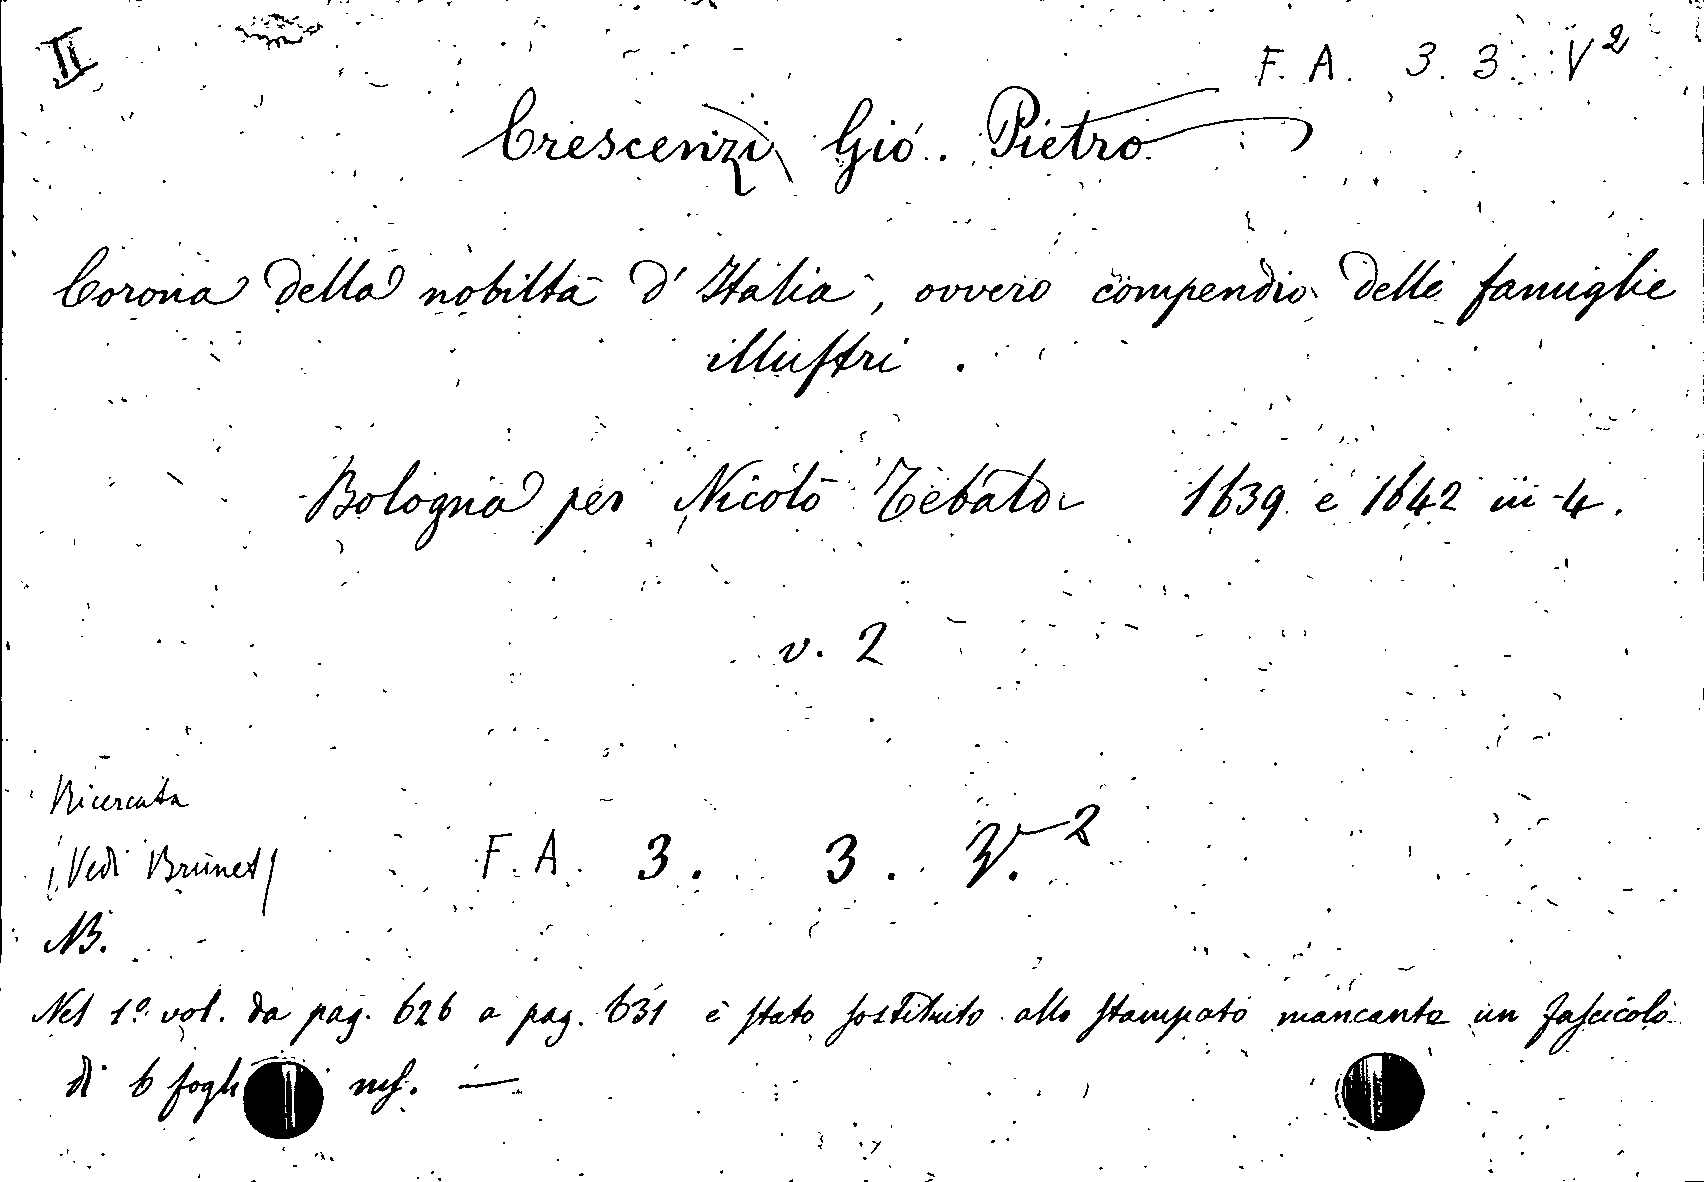 II
F. A. 3. 3. V2
Crescenzi Gio. Pietro
Corona della nobiltà d'Italia, ovvero compendio delle famiglie
illustri.
Bologna per Nicolò Tebaldi 1639 e 1642 in-4.
v. 2
Ricercata
(Vedi Brunet)
F. A. 3. 3. V.2
NB.
Nel 1º vol. da pag. 626 a pag. 631 è stato sostituito allo stampato mancante un fascicolo
di 6 fogli ms. —